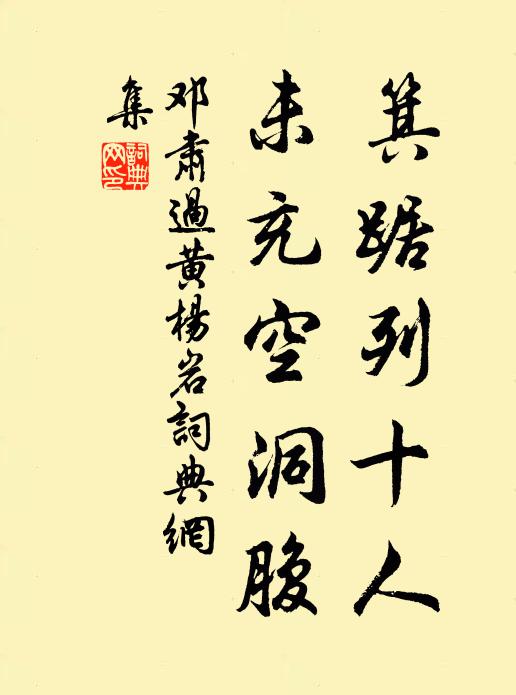 箕踞列十人
未充空洞腹
邓肃過黄楊岩詞典網
集
詞典網印